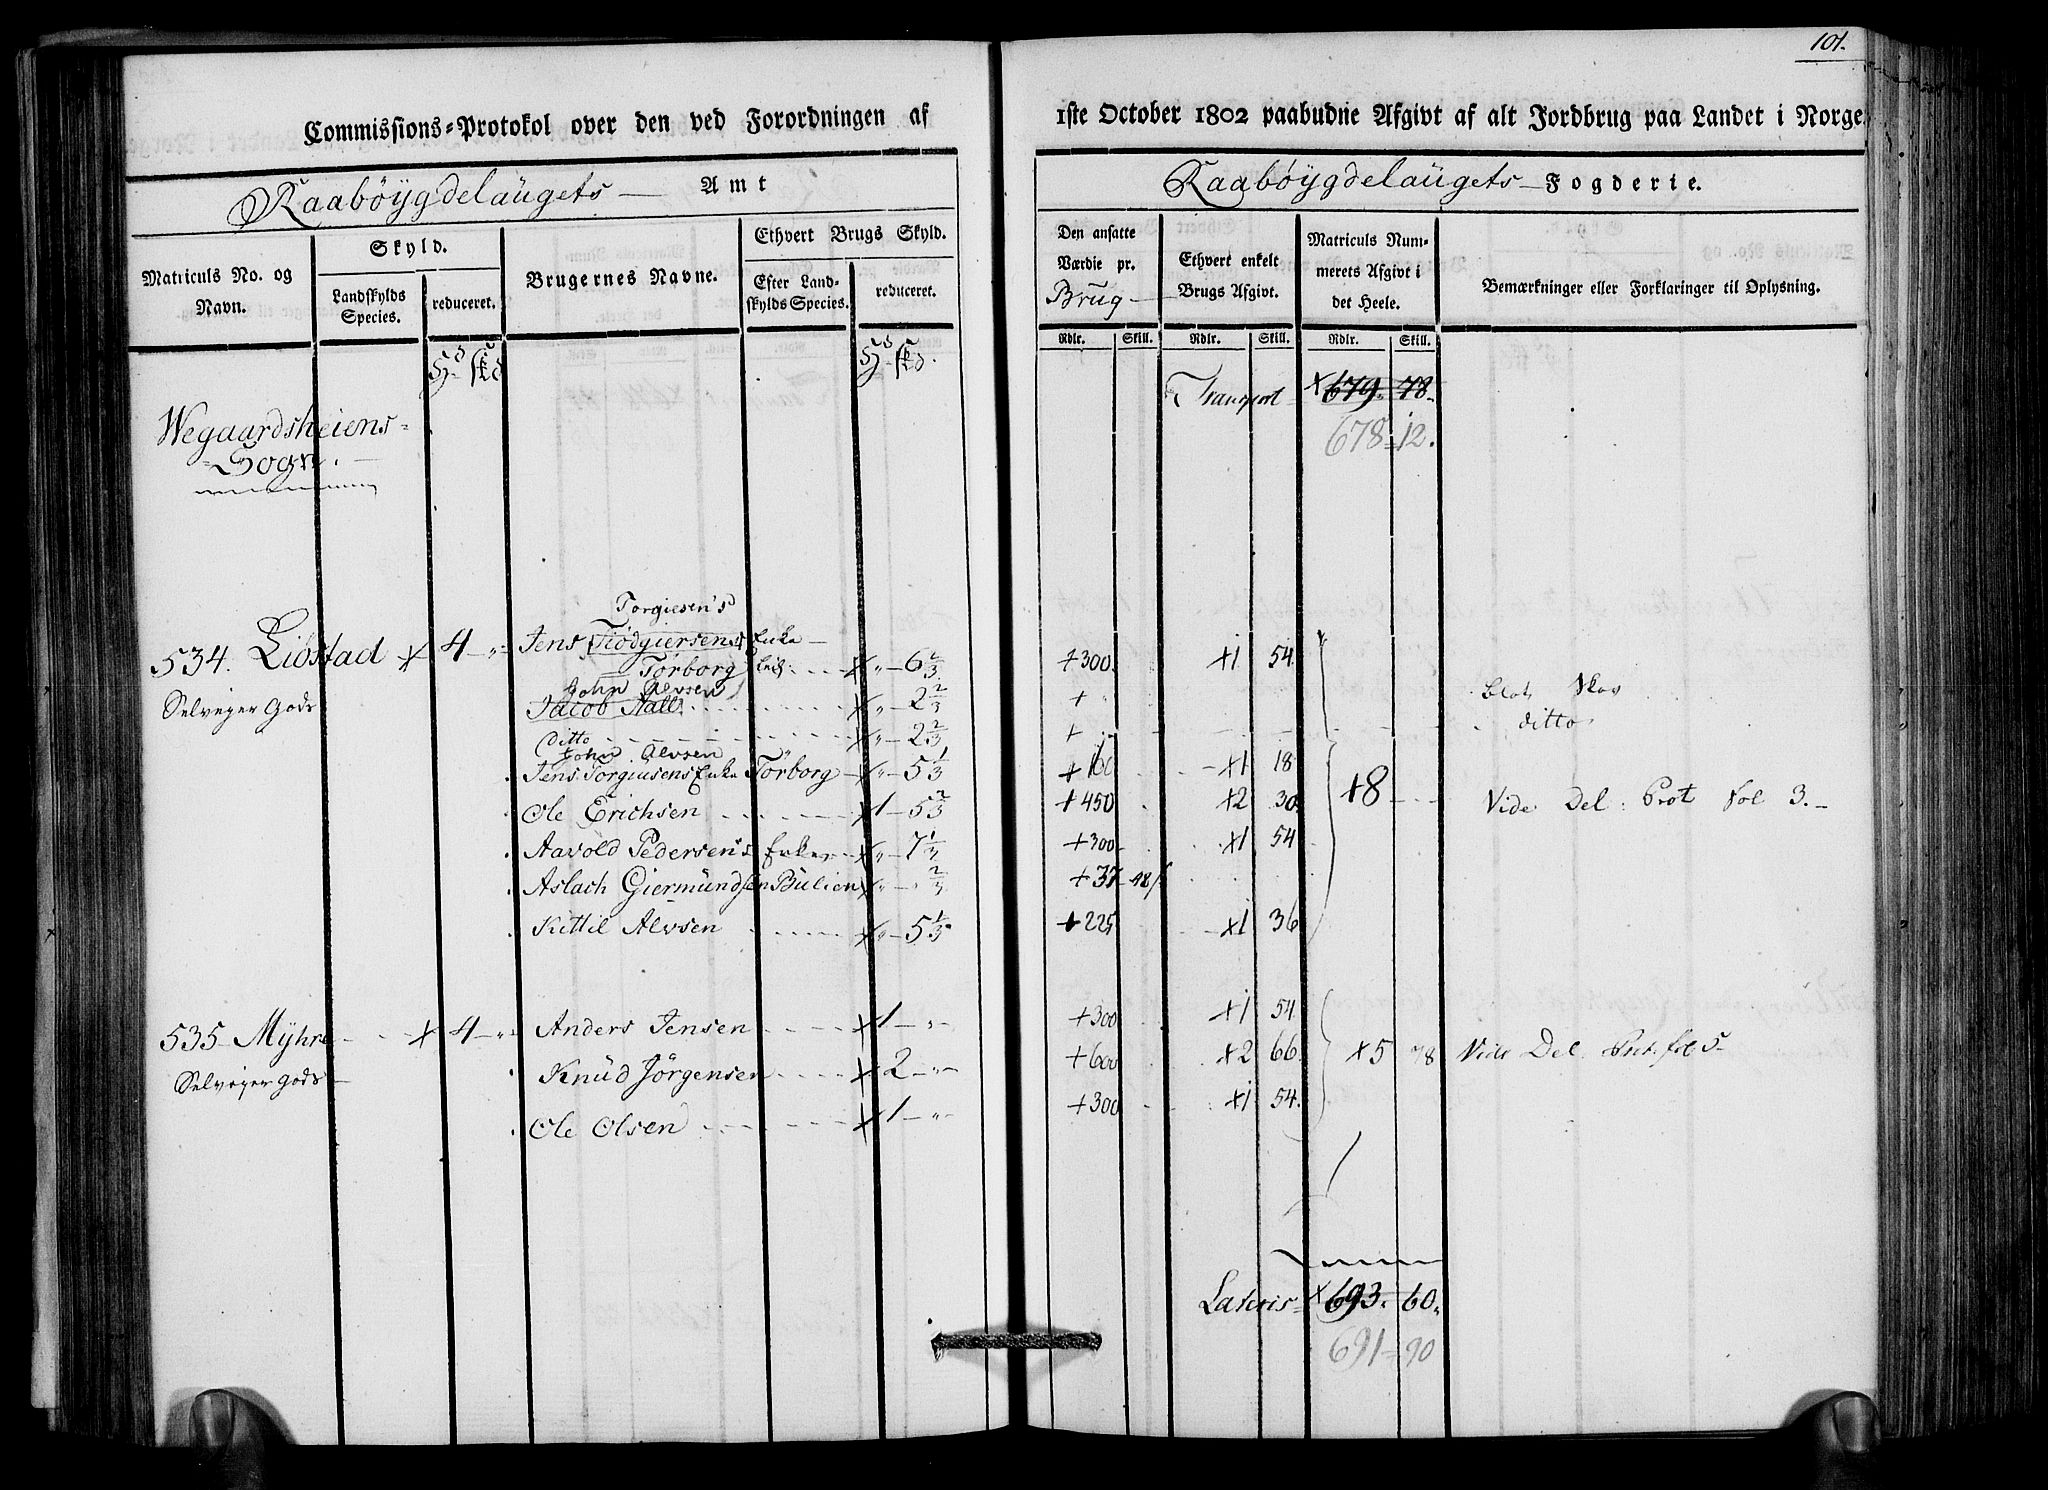 101.
Commissions-Protokol over den ved Forordningen af 1ste October 1802 paabudne Afgivt af alt Jordbrug paa Landet i Norge.
Raabøygdelaugets Amt
Raabøygdelaugets Fogderie.
Matriculs No. og Navn.
Skyld.
Landskylds Species.
reduceret.
Brugernes Navne.
Ethvert Brugs Skyld.
Efter Landskylds Species.
reduceret.
Den ansatte Værdie pr. Brug
Ethvert enkelt Brugs Afgivt.
Matriculs Nummerets Afgivt i det Heele.
Bemærkninger eller Forklaringer til Oplysning.
Rdlr. Skill. Rdlr. Skill. Rdlr. Skill.
Transport x 679. 78.
678 = 12.
Wegaardsheiens=
=Sogn.
Torgiesen's
534. Lidstad x 4 - " Jens Tiødgiersens Enke
Torborg x " - 6 2/3 + 300. x1 54.
Selveyer Gods
John Alvsen
Jacob Aall x " - 2 2/3 + " Blot Skov
ditto x " - 2 2/3 + ditto
John Alvsen
Jens Torgiusens Enke Torborg x " - 5 1/3 + 160 x1 18
Ole Erichsen x 1 - 5 2/3 + 450 x2 30 x8 Vide Del: Prot fol 3.
Aavold Pedersen's Enke x " - 7 1/3 + 300 x1 54
Aslach Giermundsen Bulien x " - " 2/3 + 37 - 48
Kittil Alvsen x " - 5 1/3 + 225 x1 36
535 Myhre x 4 - " Anders Jensen x 1 - " + 300 x1 54
Selveyer gods
Knud Jørgensen x 2 - " + 600 x2 66. x5 78 Vide Del. Prot. fol 5
Ole Olsen x 1 - " + 300 x1 54.
Lateris x 693. 60.
691 = 90